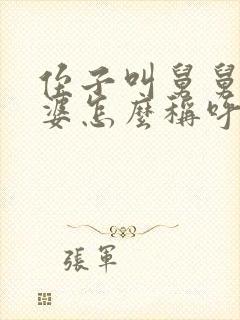 侄子叫舅舅
婆怎麼稱呼
張軍